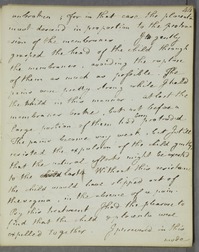 embration; for in that case, the placenta
must descend in proportion to the protru-
sion of the membranes. gently
grasped the head of the child through
the membranes, avoiding the rupture
of them as much as possible. The
pains were pretty strong while I held
the child in this manner at last the
membranes broke, but not before a
large portion of them had protruded.
The pains became very weak but I still
resisted the expulsion of the child gently,
that the natural efforts might be exerted
to the last. Without this resistance
the child would have slipped out of
the vagina, in the absence of a pain.
By this treatment I had the pleasure to
find that the child & placenta were
expelled together. I persevered in this
mode